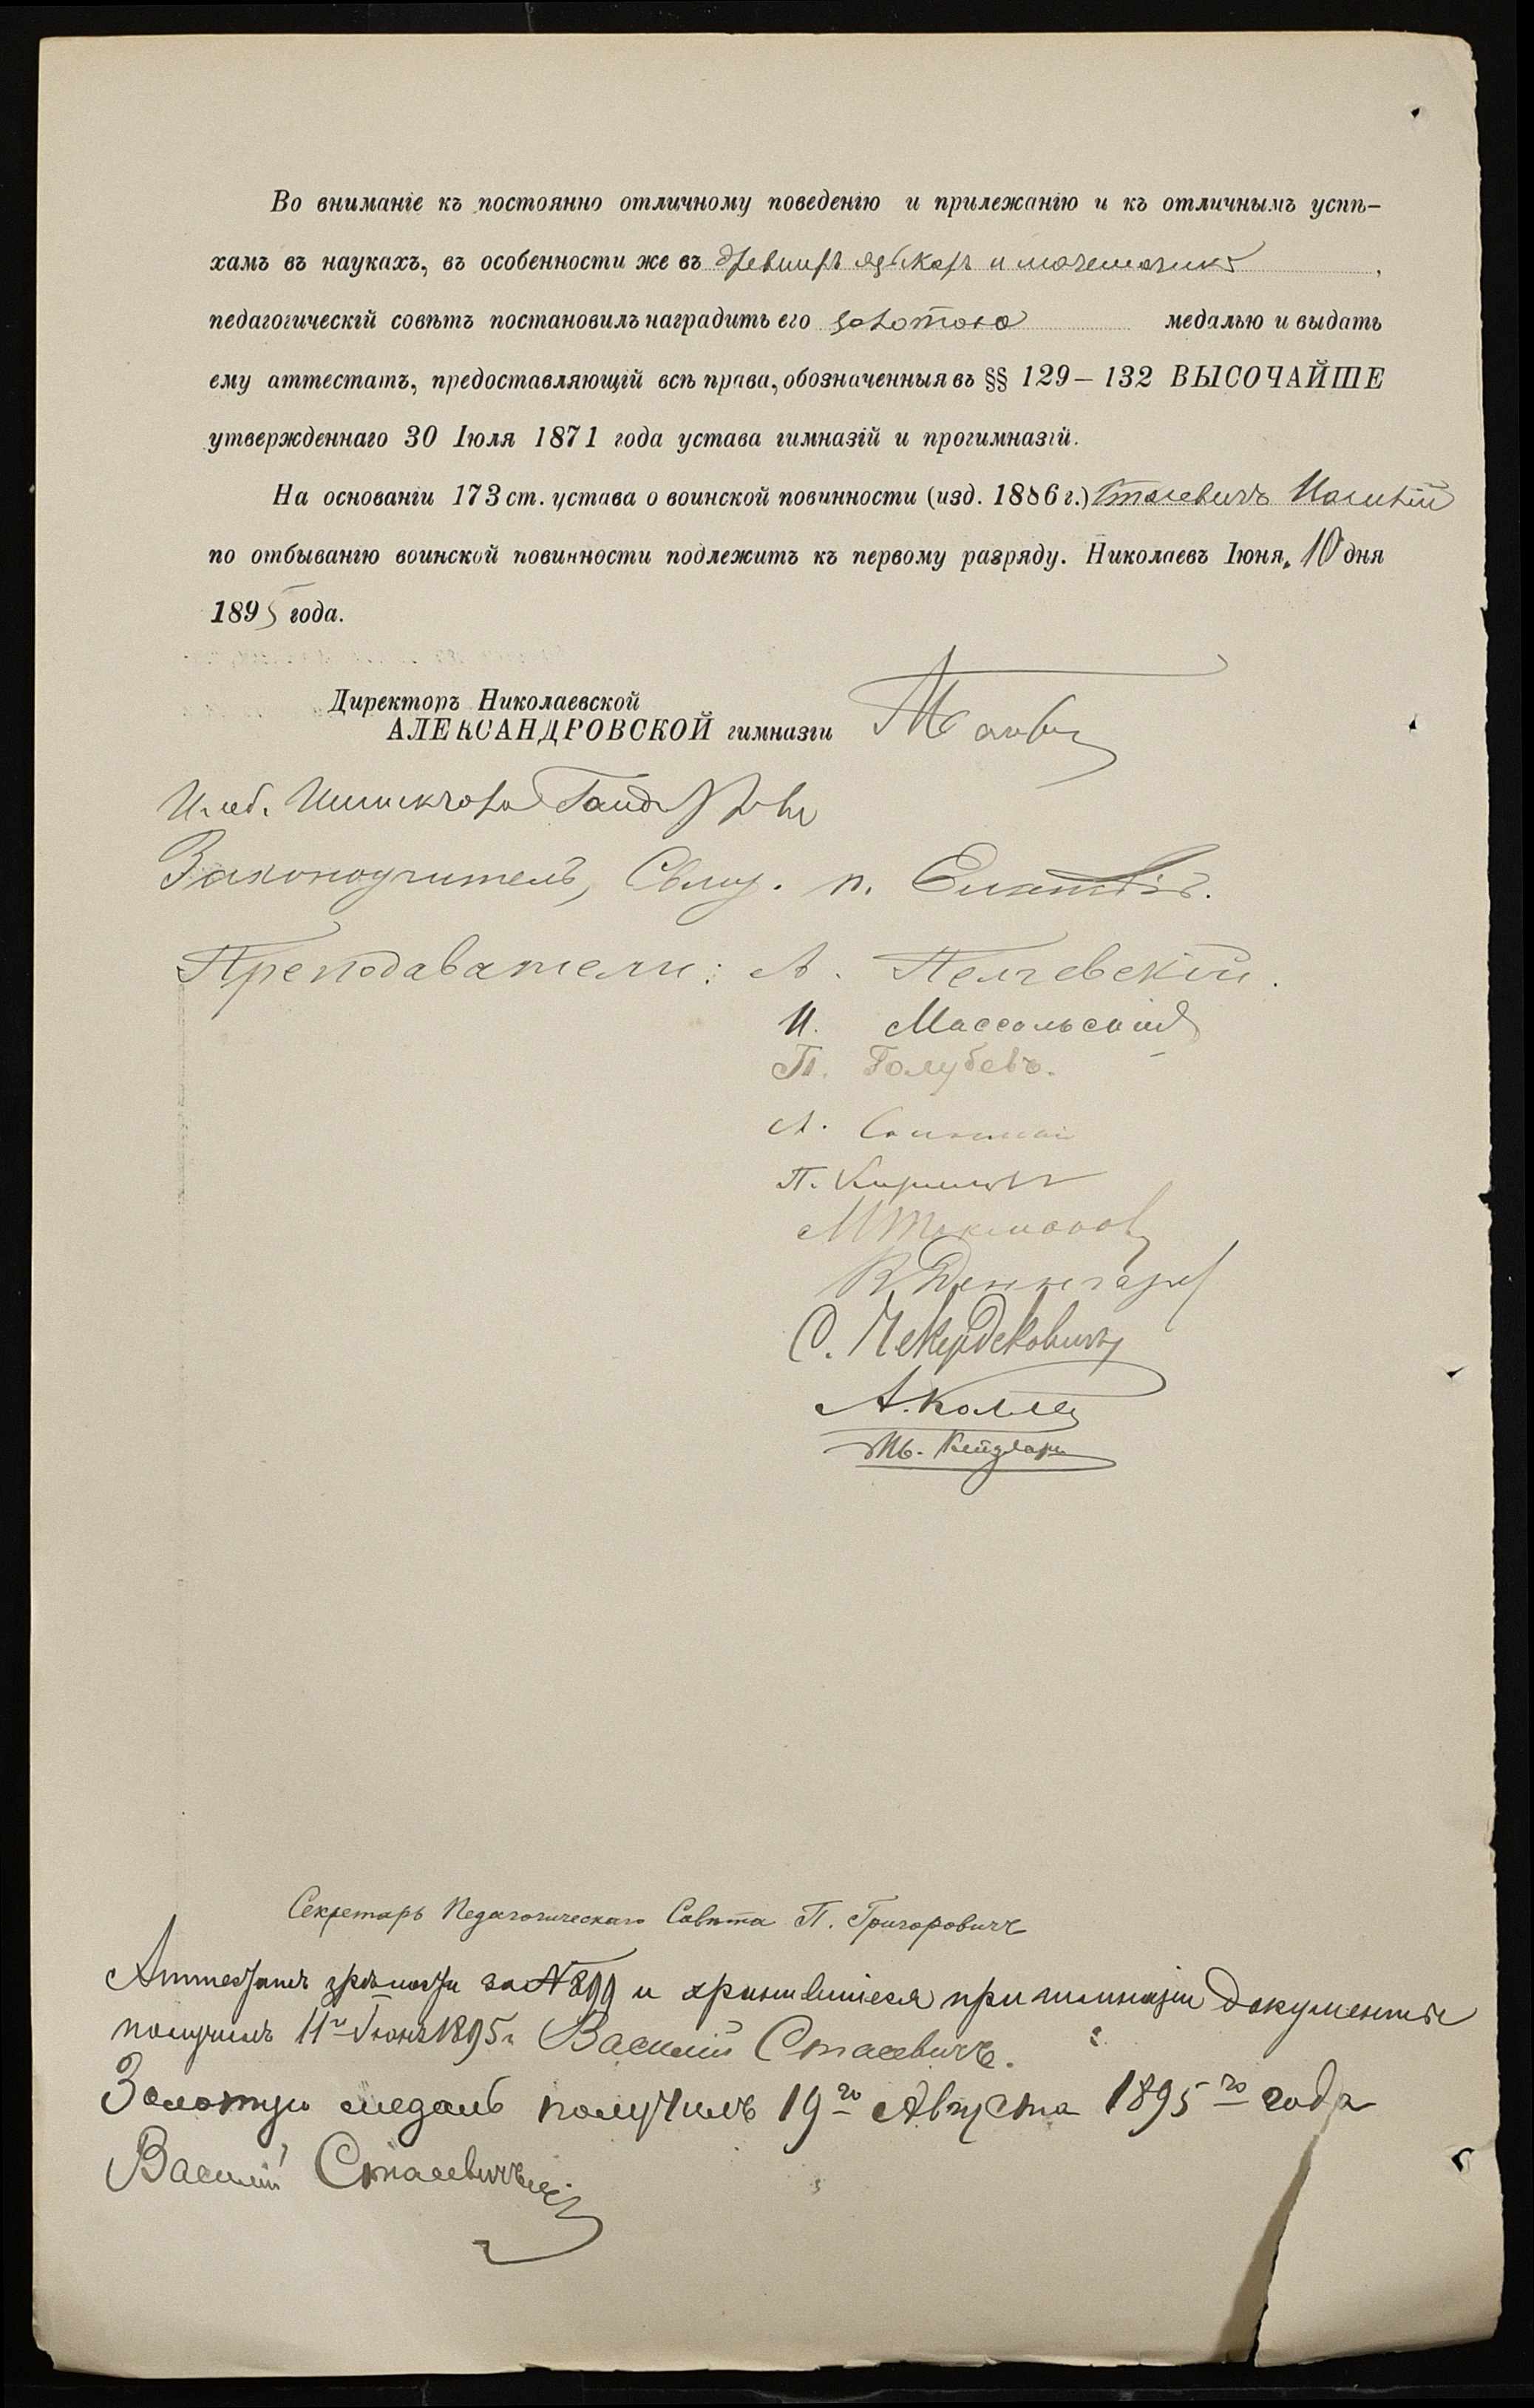 Во вниманіе къ постоянно отличному поведенію и прилежанію и къ отличнымъ успѣ-
хамъ въ наукахъ, въ особенности же въ древнихъ языкахъ и математикѣ,
педагогическій совѣтъ постановилъ наградить его золотою медалью и выдать
ему аттестатъ, предоставляющій всѣ права, обозначенныя въ §§ 129–132 ВЫСОЧАЙШЕ
утвержденнаго 30 Іюля 1871 года устава гимназій и прогимназій.
На основаніи 173 ст. устава о воинской повинности (изд. 1886 г.) Стасевичъ Василій
по отбыванію воинской повинности подлежитъ къ первому разряду. Николаевъ Іюня, 10 дня
1895 года.
Директоръ Николаевской
АЛЕКСАНДРОВСКОЙ гимназіи
Законоучитель, Свящ.
Преподаватели: А. Пелчевскій.
И. Массальскій
П. Голубевъ.
А.
П.
С. Чекердековичъ
А. Колле
Секретарь Педагогическаго Совѣта П. Григоровичъ
Аттестатъ зрѣлости за № 899 и хранившіеся при гимназіи документы
получилъ 11го Іюня 1895 г. Василій Стасевичъ.
Золотую медаль получилъ 19го Августа 1895го года
Василій Стасевичъ